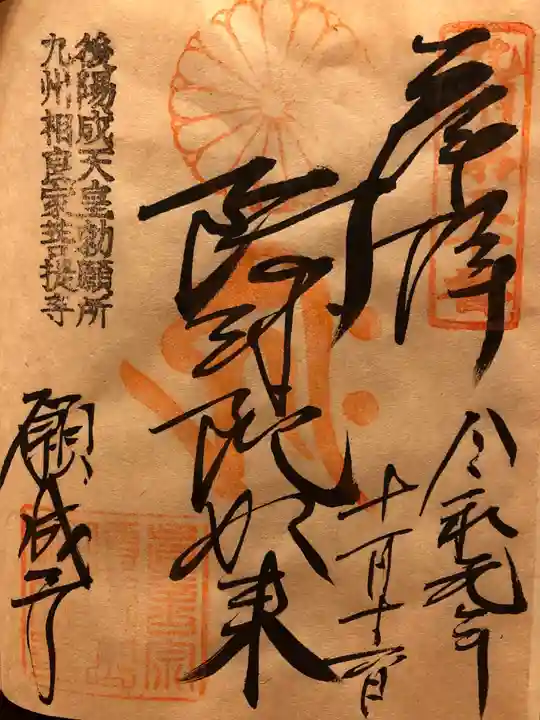 奉拝
令和元年
十一月
阿弥陀如来
後陽成天皇勅願所
九州相良家菩提寺
願成寺